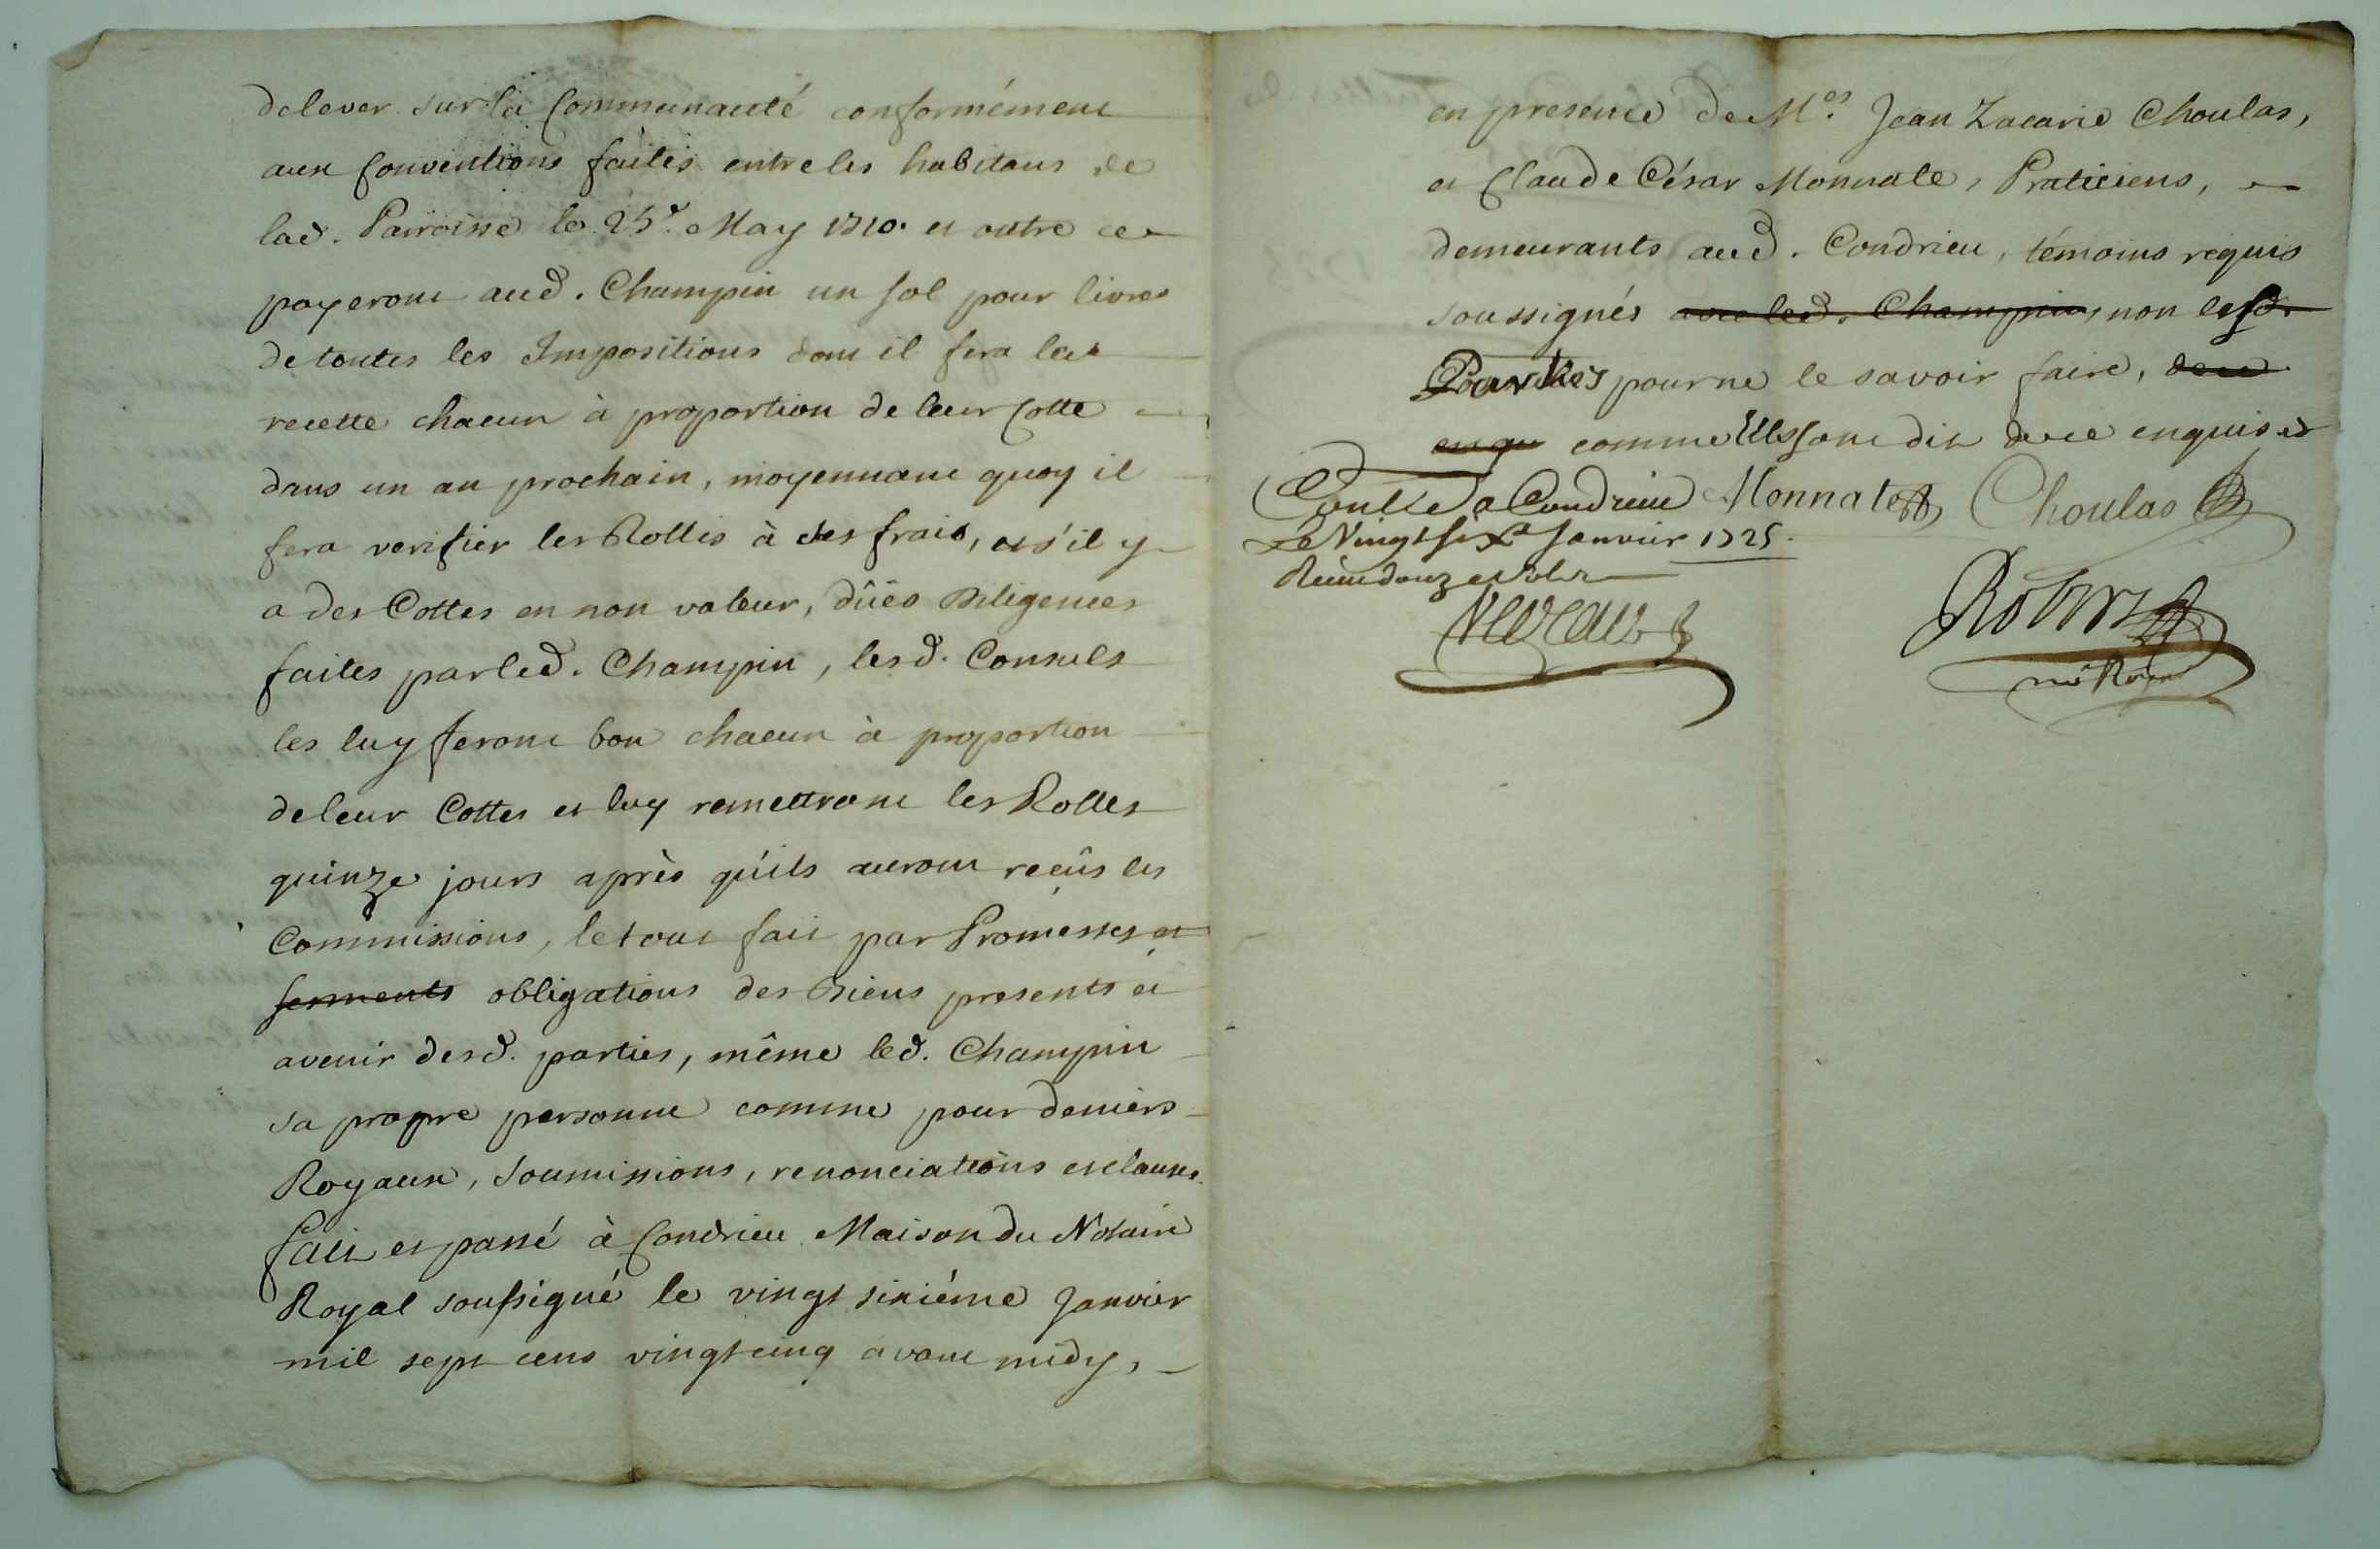 delever sur la Communauté conformément
aux Conventions faites entre les habitans de
lad. Parroisse le 25e. May 1710. et outre ce
payeront aud. Champin un sol pour livre
de toutes les Impositions dont il fera la
recette chacun à proportion de leur Cotte
dans un an prochain, moyennant quoy il
fera verifier les Rolles à ses frais, et s'il y
a des Cottes en non valeur, dûës Diligences
faites par led. Champin, lesd. Consuls
les luy feront bon chacun à proportion
de leur Cottes et luy remettront les Rolles
quinze jours après qu'ils auront reçûs les
Commissions, le tout fait par Promesses et
serments obligations des Biens presents et
avenir desd. parties, même led. Champin
sa propre personne comme pour deniers
Royaux, Soumissions, renonciations et clauses.
fait et passé à Condrieu Maison du Notaire
Royal soussigné le vingt sixiéme Janvier
mil sept cens vingt cinq avant midy,
en presence de Mes. Jean Zacarie Choulas,
et Claude César Monnate, Praticiens,
demeurants aud. Condrieu, témoins requis
soussignés avec led. Champin, non lesd.
Parties pour ne le savoir faire, de ce
enqu comme Ils sont dit de ce enquis et
Conllé a Condrieu Monnate Choulas
Le Vingt six Janvier 1725.
Receu douze sols
Robert
nre Royal